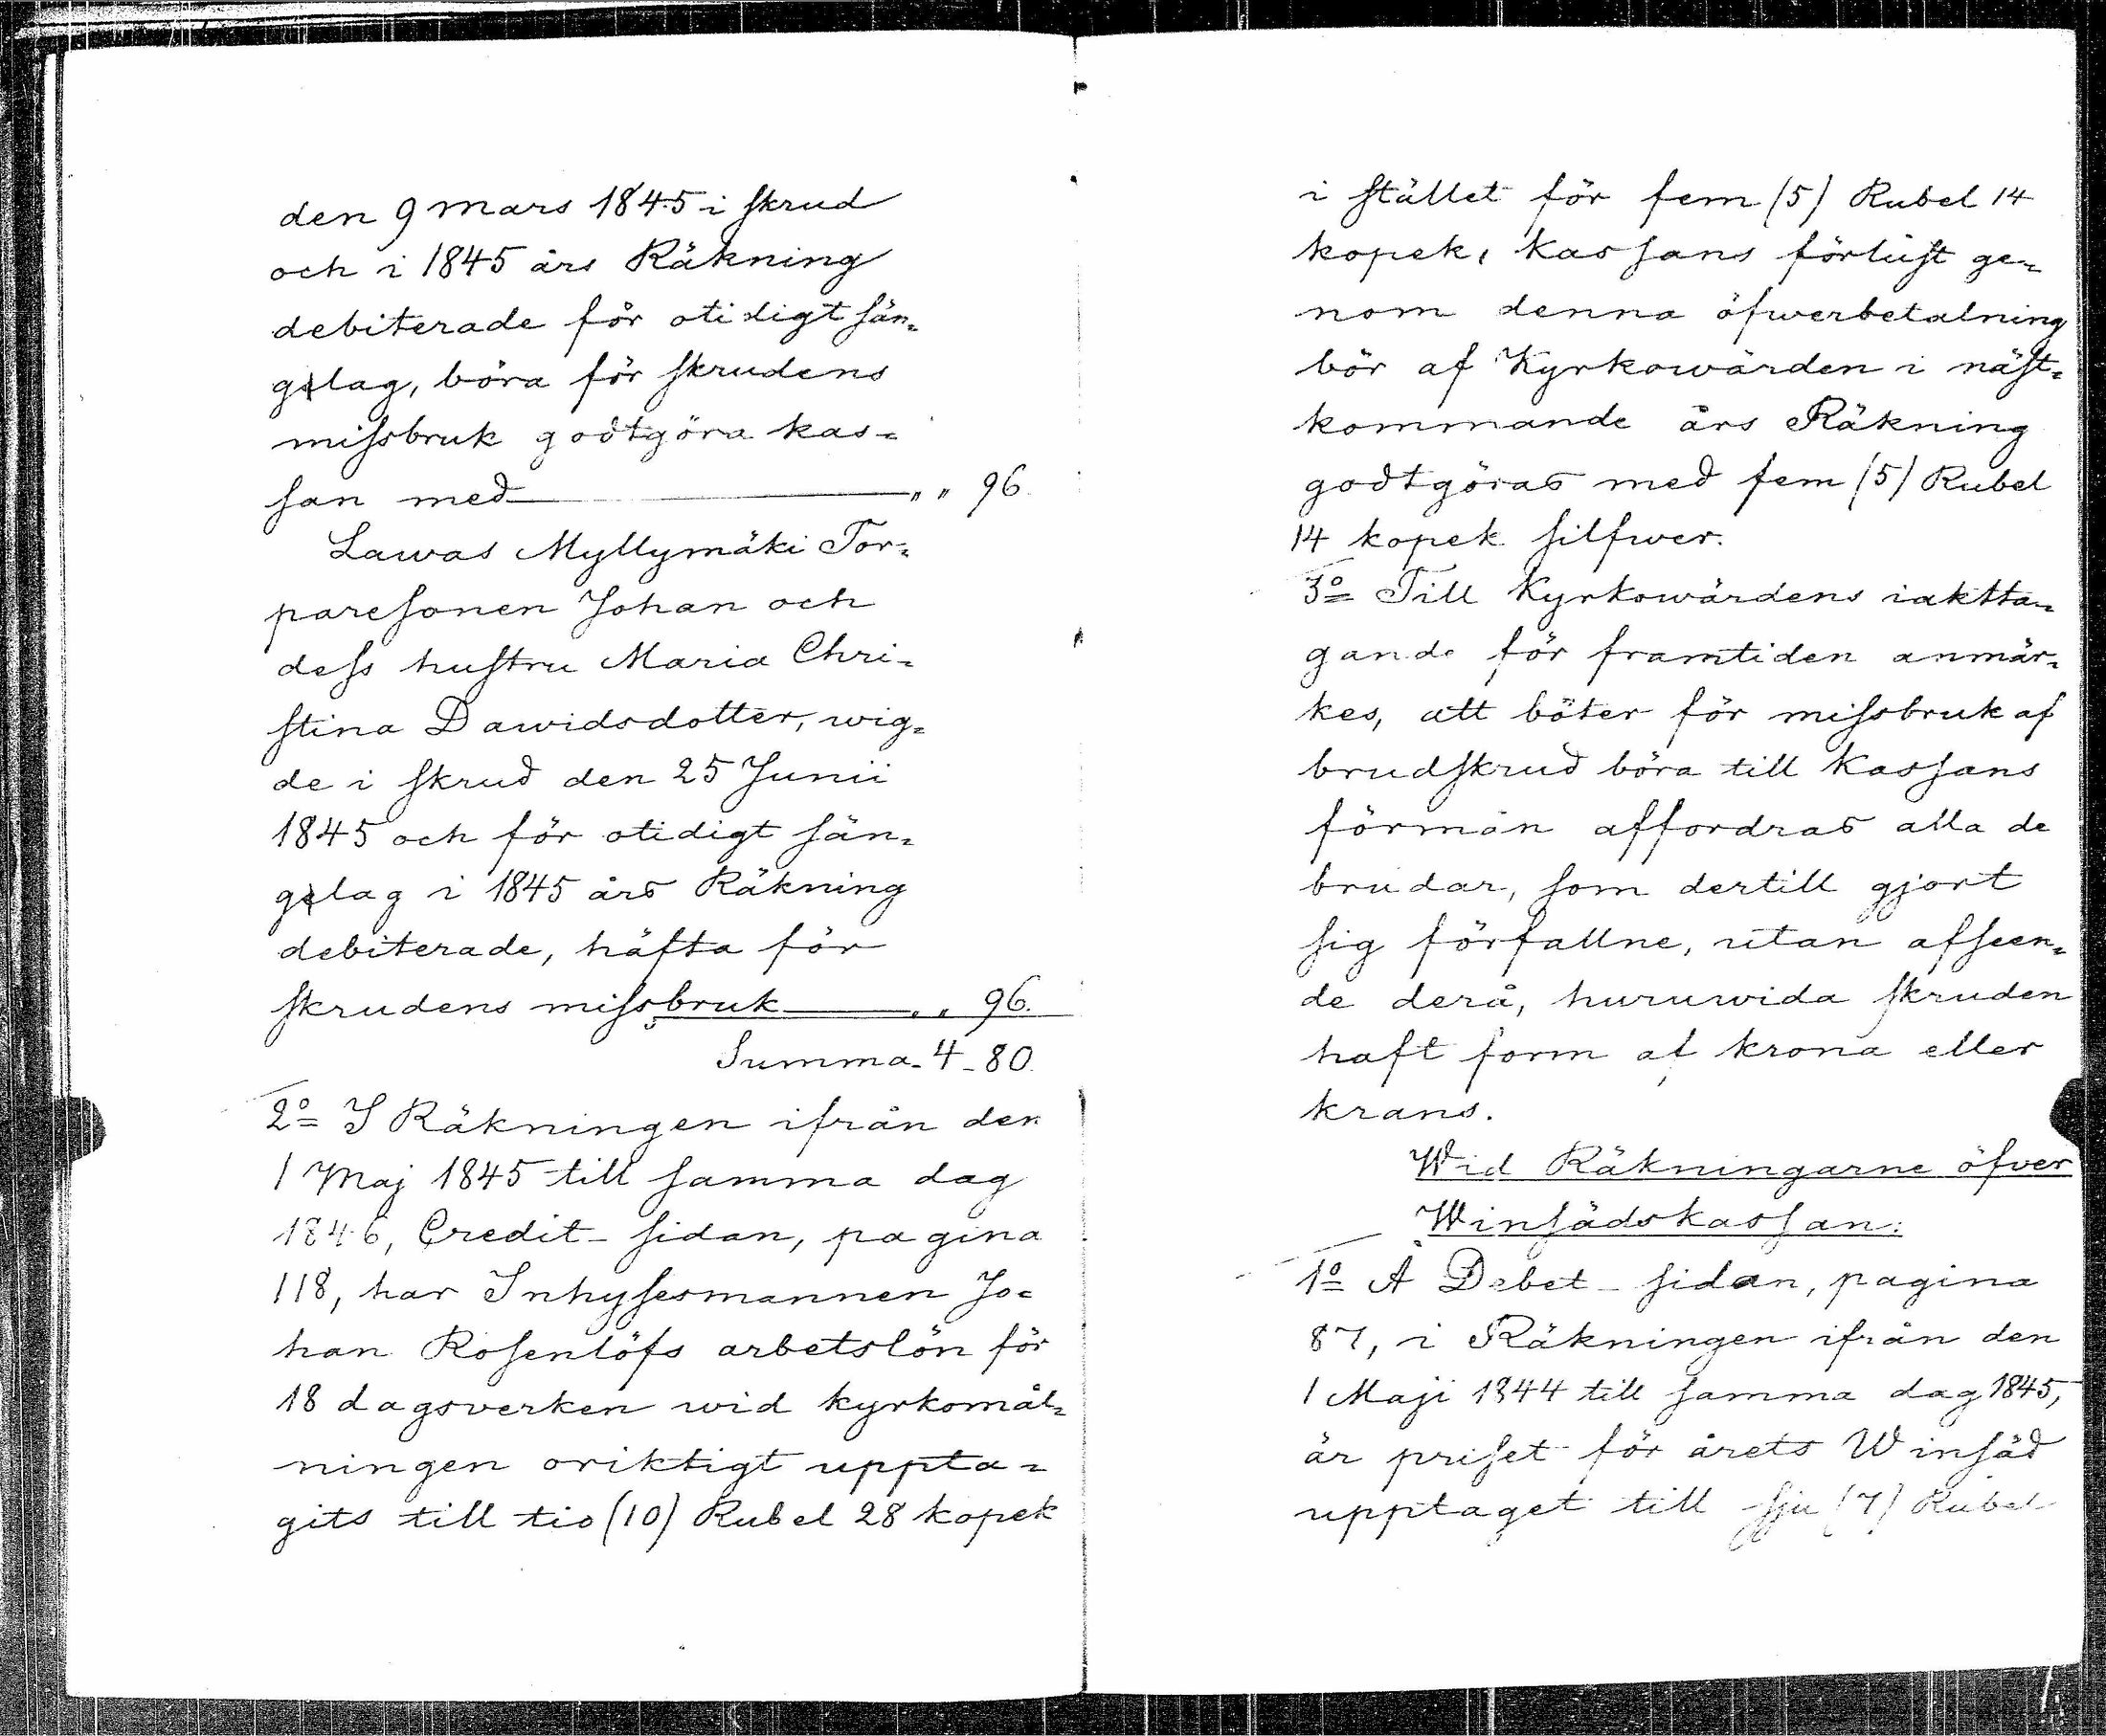 den 9 mars 1845 i skrud
och i 1845 års Räkning
debiterade för otidigt sän-
gelag, böra för skrudens
missbruk godtgöra kas-
san med „ „ 96
Lawas Myllymäki Tor-
paresonen Johan och
dess hustru Maria Chri-
stina Dawidsdotter, wig-
de i skrud den 25 Junii
1845 och för otidigt sän-
gelag i 1845 års Räkning
debiterade, häfta för
skrudens missbruk „ „ 96.
Summa - 4 - 80.
2º I Räkningen ifrån den
1 Maj 1845 till samma dag
1846, Credit-sidan, pagina
118, har Inhysesmannen Jo-
han Rosenlöfs arbetslön för
18 dagsverken wid kyrkomål-
ningen oriktigt uppta-
gits till tio (10) Rubel 28 kopek
i stället för fem (5) Rubel 14
kopek, kassans förlust ge-
nom denna öfwerbetalning
bör af Kyrkowärden i näst-
kommande års Räkning
godtgöras med fem (5) Rubel
14 kopek silfwer.
3º Till Kyrkowärdens iaktta-
gande för framtiden anmär-
kes, att böter för missbruk af
brudskrud böra till Kassans
förmån affordras alla de
brudar, som dertill gjort
sig förfallne, utan afseen-
de derå, huruwida skruden
haft form af krona eller
krans.
Wid Räkningarne öfver
Winsädskassan:
1º Å Debet-sidan, pagina
87, i Räkningen ifrån den
1 Maji 1844 till samma dag 1845,
är priset för årets Winsäd
upptaget till sju (7) Rubel